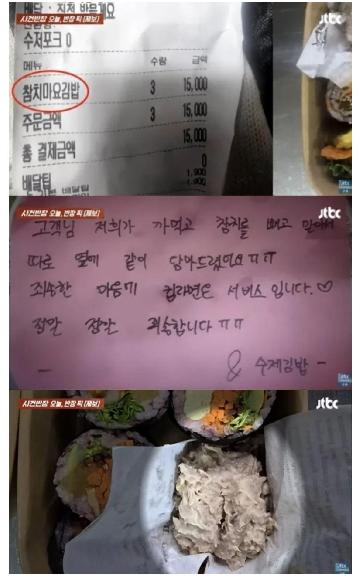 배달 : 직접 받을게요
사건반장 오늘, 반장 픽 [제보]
jtbc
수저포크 0
메뉴 수량 금액
참치마요김밥 3 15,000
주문금액 3 15,000
총 결제금액 15,000
0
배달팁 1,900
1,900
사건반장 오늘, 반장 픽 [제보]
jtbc
고객님 저희가 까먹고 참치를 빼고 말아서
따로 옆에 같이 담아드렸어요ㅠㅠ
죄송한 마음에 컵라면은 서비스입니다.♡
정말 정말 죄송합니다ㅠㅠ
& 수제김밥 -
jtbc
사건반장 오늘, 반장 픽 [제보]
jtbc
jtbc